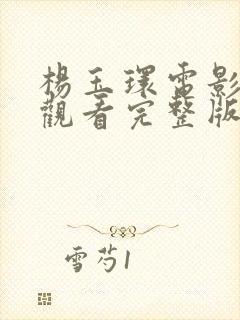 楊玉環電影
觀看完整版
雪芍1